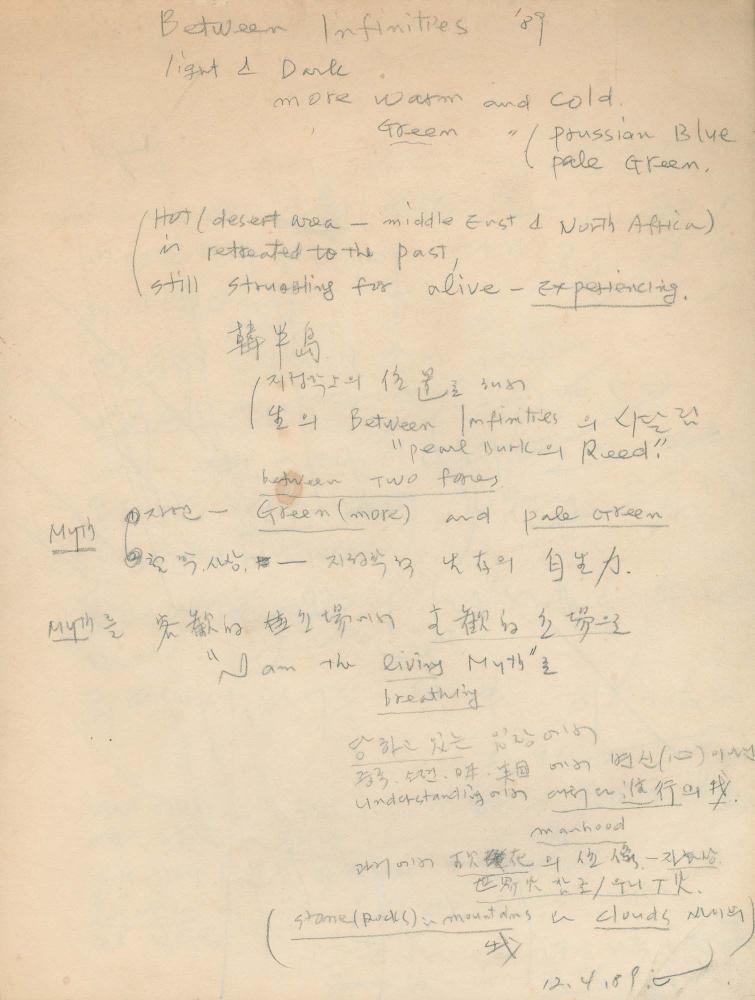 Between Infinities '89
light & Dark
more warm and cold.
Green " ( prussian Blue
pale Green.
Hot (desert area - middle East & North Africa)
is retreated to the past,
still struggling for alive - Experiencing.
韓半島
지정학上의 位置를
生의 Between Infinities 의 시달림
"pearl Burk의 Reed."
between Two forces
Myth ① 자연 - Green (more) and pale Green
② 철학, 사상, - 지정학的 生存의 自生力.
Myth를 客歡的 立場에서 主歡的 立場으로
"I am the living Myth"로
breathing
당하고 있는 입장에서
중국. 소련. 日本. 美国 에서 변신(心)
understanding에서 進行의 我.
manhood
과거에서 花의 位像, - 자화상
世界史 참조/우리
(stone (rocks): mountains 와 clouds 사이의)
我
12.4.89.